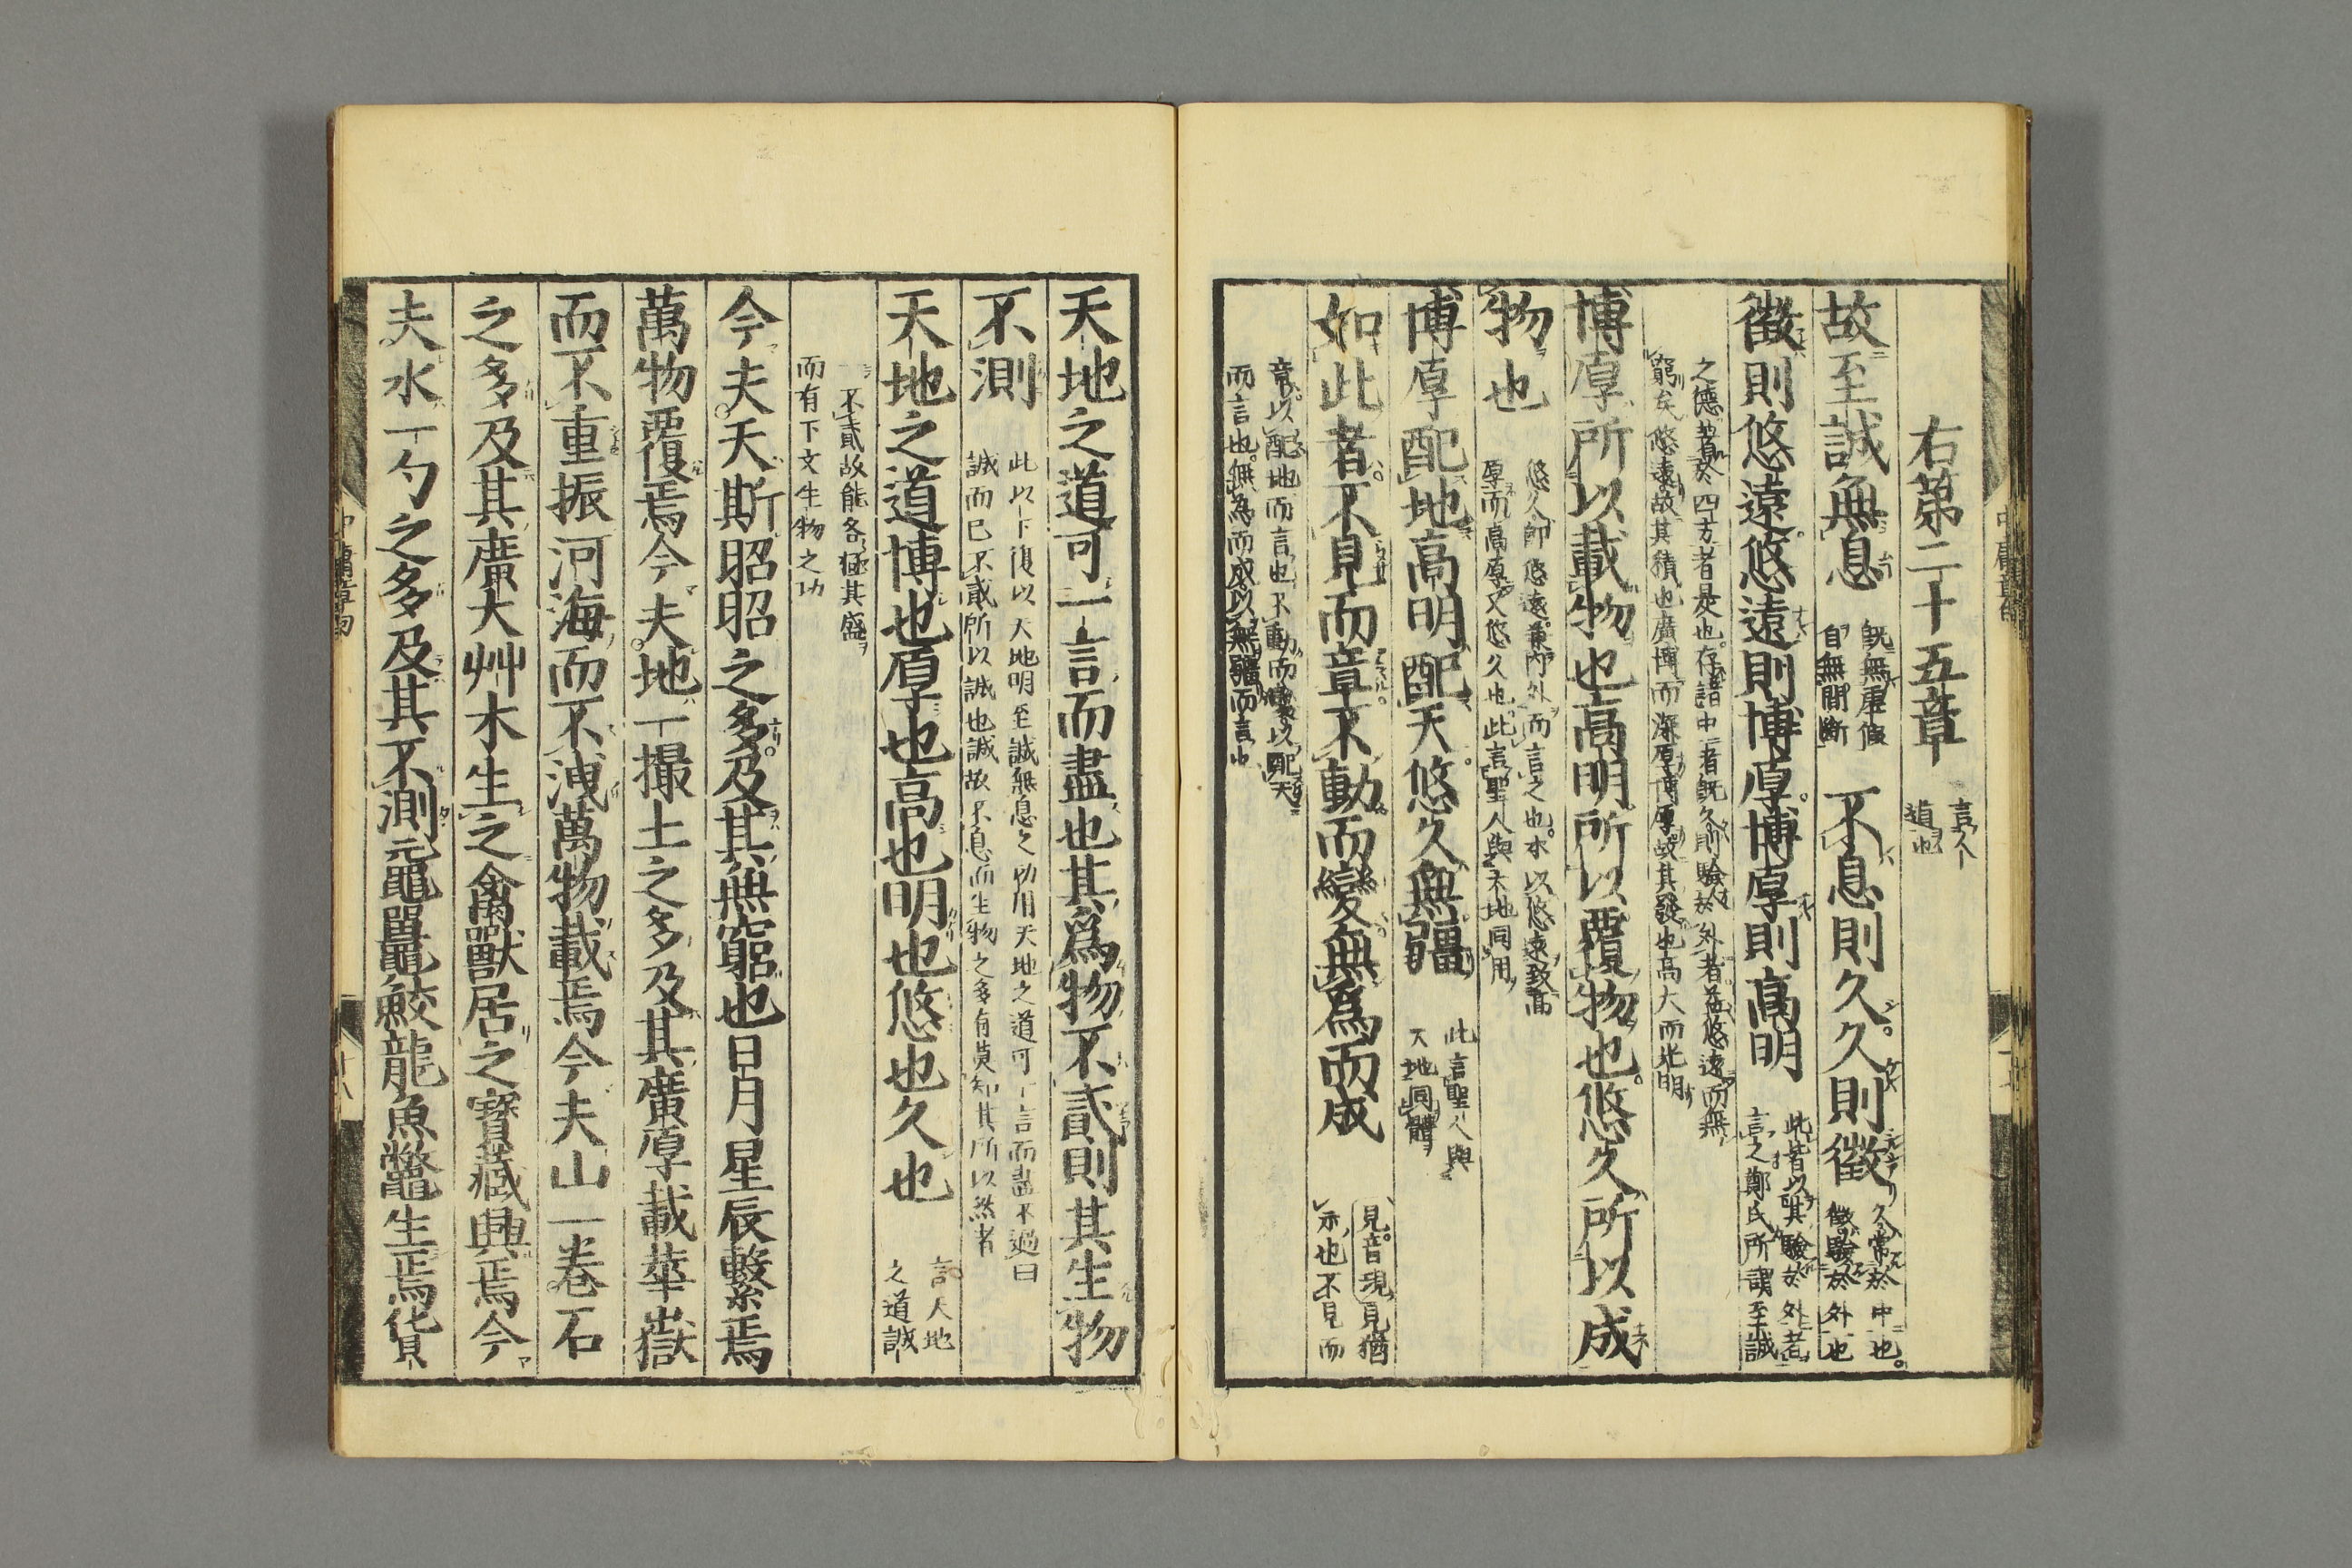 右第二十五章
言人
道也
故至誠無息
既無虛假
自無間斷
不息則久久則徵
久常於中也
徵驗於外也
徵則悠遠悠遠則博厚博厚則高明
此皆以其驗於外者
言之鄭氏所謂至誠
之德著於四方者是也存諸中者既久則驗於外者益悠遠而無
窮矣悠遠故其積也廣博而深厚博厚故其發也高大而光明
博厚所以載物也高明所以覆物也悠久所以成
物也
悠久即悠遠兼內外而言之也本以悠遠致高
厚而高厚又悠久也此言聖人與天地同用
博厚配地高明配天悠久無疆
此言聖人與
天地同體
如此者不見而章不動而變無爲而成
見音現見猶
示也不見而
章以配地而言也不動而變以配天
而言也無爲而成以無疆而言也
天地之道可一言而盡也其爲物不貳則其生物
不測
此以下復以天地明至誠無息之功用天地之道可一言而盡不過曰
誠而已不貳所以誠也誠故不息而生物之多有莫知其所以然者
天地之道博也厚也高也明也悠也久也
言天地
之道誠
一不貳故能各極其盛
而有下文生物之功
今夫天斯昭昭之多及其無窮也日月星辰繫焉
萬物覆焉今夫地一撮土之多及其廣厚載華嶽
而不重振河海而不洩萬物載焉今夫山一卷石
之多及其廣大艸木生之禽獸居之寶藏興焉今
夫水一勺之多及其不測黿鼉鮫龍魚鼈生焉貨
中庸章句
十八